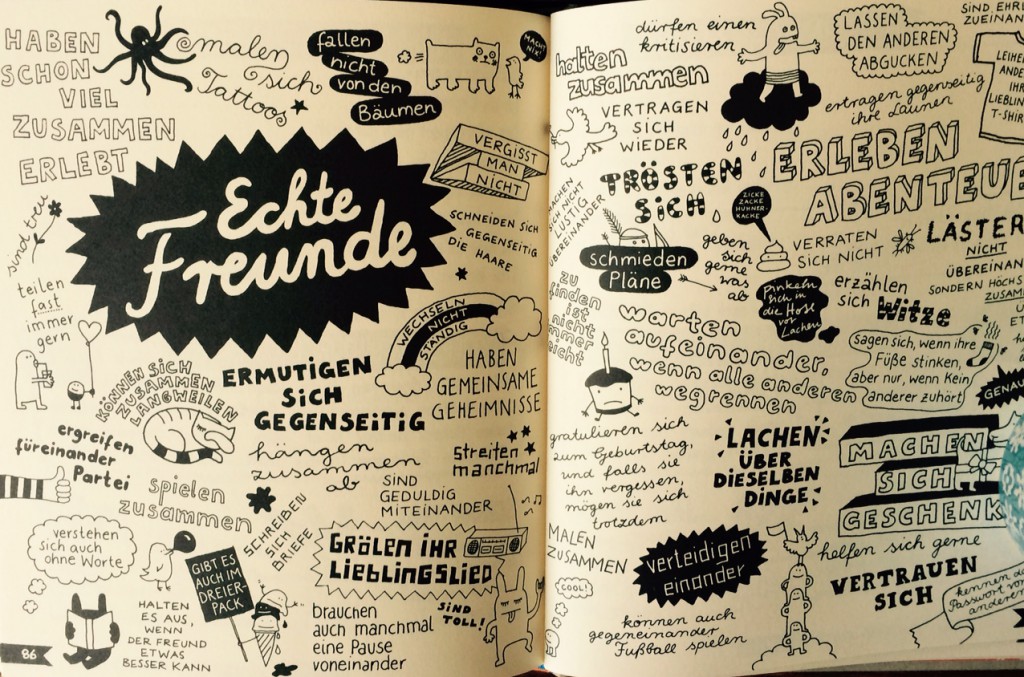 HABEN
SCHON
VIEL
ZUSAMMEN
ERLEBT
malen
sich
Tattoos
fallen
nicht
von den
Bäumen
MACHT
NIX!
VERGISST
MAN
NICHT
Echte
Freunde
sind treu
SCHNEIDEN SICH
GEGENSEITIG
DIE HAARE
teilen
fast
immer
gern
WECHSELN
NICHT
STÄNDIG
KÖNNEN SICH
ZUSAMMEN
LANGWEILEN
ERMUTIGEN
SICH
GEGENSEITIG
HABEN
GEMEINSAME
GEHEIMNISSE
ergreifen
füreinander
Partei
hängen
zusammen
ab
streiten
manchmal
spielen
zusammen
SIND
GEDULDIG
MITEINANDER
SCHREIBEN
SICH
BRIEFE
verstehen
sich auch
ohne Worte
GIBT ES
AUCH IM
DREIER-
PACK
GRÖLEN IHR
LIEBLINGSLIED
HALTEN
ES AUS,
WENN
DER FREUND
ETWAS
BESSER KANN
brauchen
auch manchmal
eine Pause
voneinander
SIND
TOLL!
86
halten
zusammen
dürfen einen
kritisieren
LASSEN
DEN ANDEREN
ABGUCKEN
SIND EHRL
ZUEINAN
VERTRAGEN
SICH
WIEDER
ertragen gegenseitig
ihre Launen
LEIHE
ANDE
IHR
LIEBLIN
T-SHIR
TRÖSTEN
SICH
ERLEBEN
ABENTEUE
MACHEN
SICH NICHT
LUSTIG
ÜBEREINANDER
ZICKE
ZACKE
HÜHNER-
KACKE
schmieden
Pläne
geben
sich
gerne
was
ab
VERRATEN
SICH NICHT
LÄSTER
NICHT
ÜBEREINAN
SONDERN HÖCHS
ZUSAM
zu
finden
ist
nicht
immer
leicht
Pinkeln
sich in
die Hose
vor
Lachen
erzählen
sich Witze
warten
aufeinander,
wenn alle anderen
wegrennen
Sagen sich, wenn ihre
Füße stinken,
aber nur, wenn kein
anderer zuhört
GENAU
gratulieren sich
zum Geburtstag,
und falls sie
ihn vergessen,
mögen sie sich
trotzdem
LACHEN
ÜBER
DIESELBEN
DINGE
MACHEN
SICH
GESCHENK
MALEN
ZUSAMMEN
verteidigen
einander
helfen sich gerne
VERTRAUEN
SICH
COOL!
können auch
gegeneinander
Fußball spielen
kennen da
Passwort vo
anderen